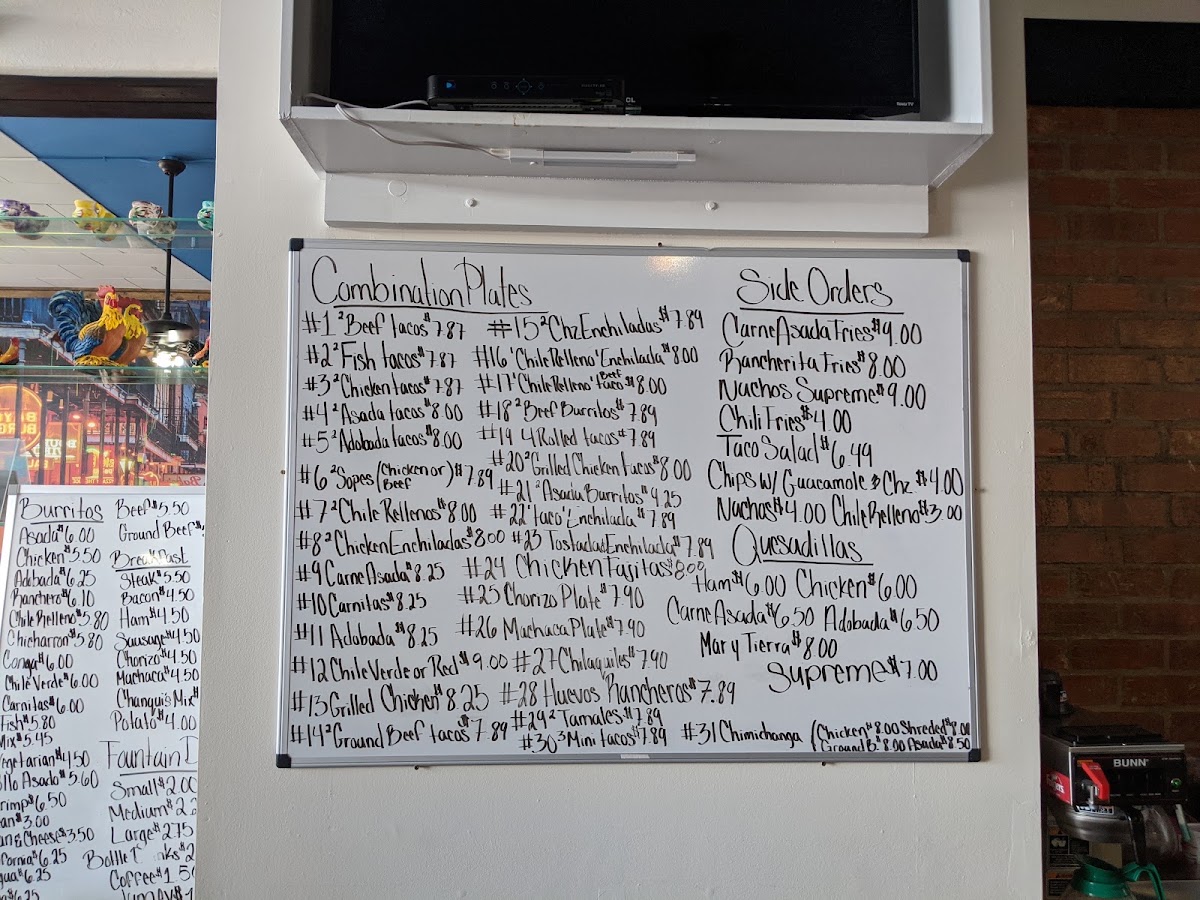 Combination Plates
#1 2 Beef tacos $7.87
#2 2 Fish tacos $7.87
#3 2 Chicken tacos $7.87
#4 2 Asada tacos $8.00
#5 2 Adobada tacos $8.00
#6 2 Sopes (Chicken or Beef) $7.89
#7 2 Chile Rellenos $8.00
#8 2 Chicken Enchiladas $8.00
#9 Carne Asada $8.25
#10 Carnitas $8.25
#11 Adobada $8.25
#12 Chile Verde or Red $9.00
#13 Grilled Chicken $8.25
#14 2 Ground Beef tacos $7.89
#15 2 Chz Enchiladas $7.89
#16 1 Chile Relleno 1 Enchilada $8.00
#17 1 Chile Relleno 1 Beef taco $8.00
#18 2 Beef Burritos $7.89
#19 4 Rolled tacos $7.89
#20 2 Grilled Chicken tacos $8.00
#21 2 Asada Burritos $9.25
#22 1 taco 1 Enchilada $7.89
#23 Tostada & Enchilada $7.89
#24 Chicken Fajitas $8.00
#25 Chorizo Plate $7.90
#26 Machaca Plate $7.90
#27 Chilaquiles $7.90
#28 Huevos Rancheros $7.89
#29 2 Tamales $7.89
#30 3 Mini tacos $7.89
#31 Chimichanga (Chicken $8.00 Shreded $8.00
Ground B. $8.00 Asada $8.50
Side Orders
Carne Asada Fries $9.00
Rancherita Fries $8.00
Nachos Supreme $9.00
Chili Fries $4.00
Taco Salad $6.49
Chips w/ Guacamole & Chz. $4.00
Nachos $4.00 Chile Relleno $3.00
Quesadillas
Ham $6.00 Chicken $6.00
Carne Asada $6.50 Adobada $6.50
Mar y Tierra $8.00
Supreme $7.00
Burritos
Asada $6.00
Chicken $5.50
Adobada $6.25
Ranchero $6.10
Chile Relleno $5.80
Chicharron $5.80
Conga $6.00
Chile Verde $6.00
Carnitas $6.00
Fish $5.80
Mix $5.45
egetarian $4.50
llo Asado $5.60
rimp $6.50
an $3.00
an & Cheese $3.50
fornia $6.25
gua $6.25
$6.25
Beef $5.50
Ground Beef $
Breakfast
Steak $5.50
Bacon $4.50
Ham $4.50
Sausage $4.50
Chorizo $4.50
Machaca $4.50
Chanqui's Mix $
Potato $4.00
Fountain D
Small $2.00
Medium $2.2
Large $2.75
Bottle D nks $2
Coffee $1.50
BUNN
TCL
Roku TV